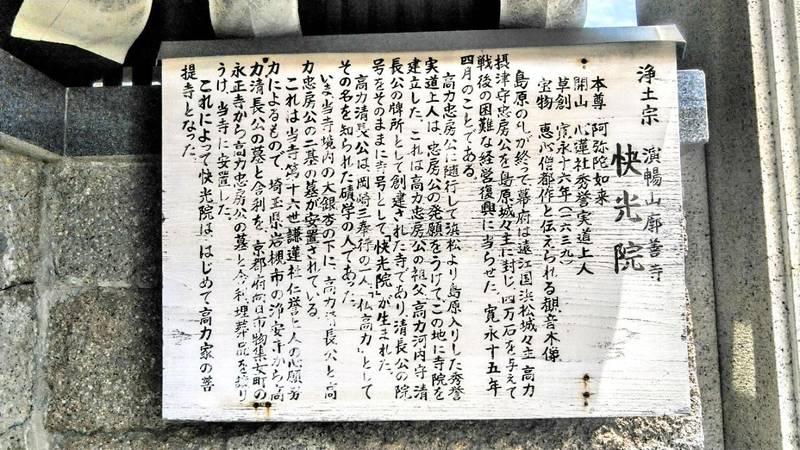 浄土宗 演暢山廓善寺
快光院
本尊 阿弥陀如来
開山 心蓮社秀誉実道上人
草創 寛永十六年(一六三九)
宝物 恵心僧都作と伝えられる観音木像
島原の乱が終って幕府は遠江国浜松城々主高力
摂津守忠房公を島原城々主に封じ、四万石を与えて
戦後の困難な経営復興に当らせた。寛永十五年
四月のことである。
高力忠房公に随行して浜松より島原入りした秀誉
実道上人は、忠房公の発願をうけてこの地に寺院を
建立した。これは高力忠房公の祖父高力河内守清
長公の牌所として創建された寺であり清長公の院
号をそのままに寺号として「快光院」が生まれた。
高力清長公は、岡崎三奉行の一人「仏高力」として
その名を知られた碩学の人であった。
いま当寺境内の大銀杏の下に、高力清長公と高
力忠房公の二基の墓が安置されている。
これは当寺第十六世謙蓮社仁誉上人の心願努
力によるもので、埼玉県岩槻市の浄安寺から高
力清長公の墓と舎利を、京都府向日市物集女町の
永正寺から高力忠房公の墓と舎利埋葬品を譲り
うけ、当寺に安置した。
これによって快光院は、はじめて高力家の菩
提寺となった。